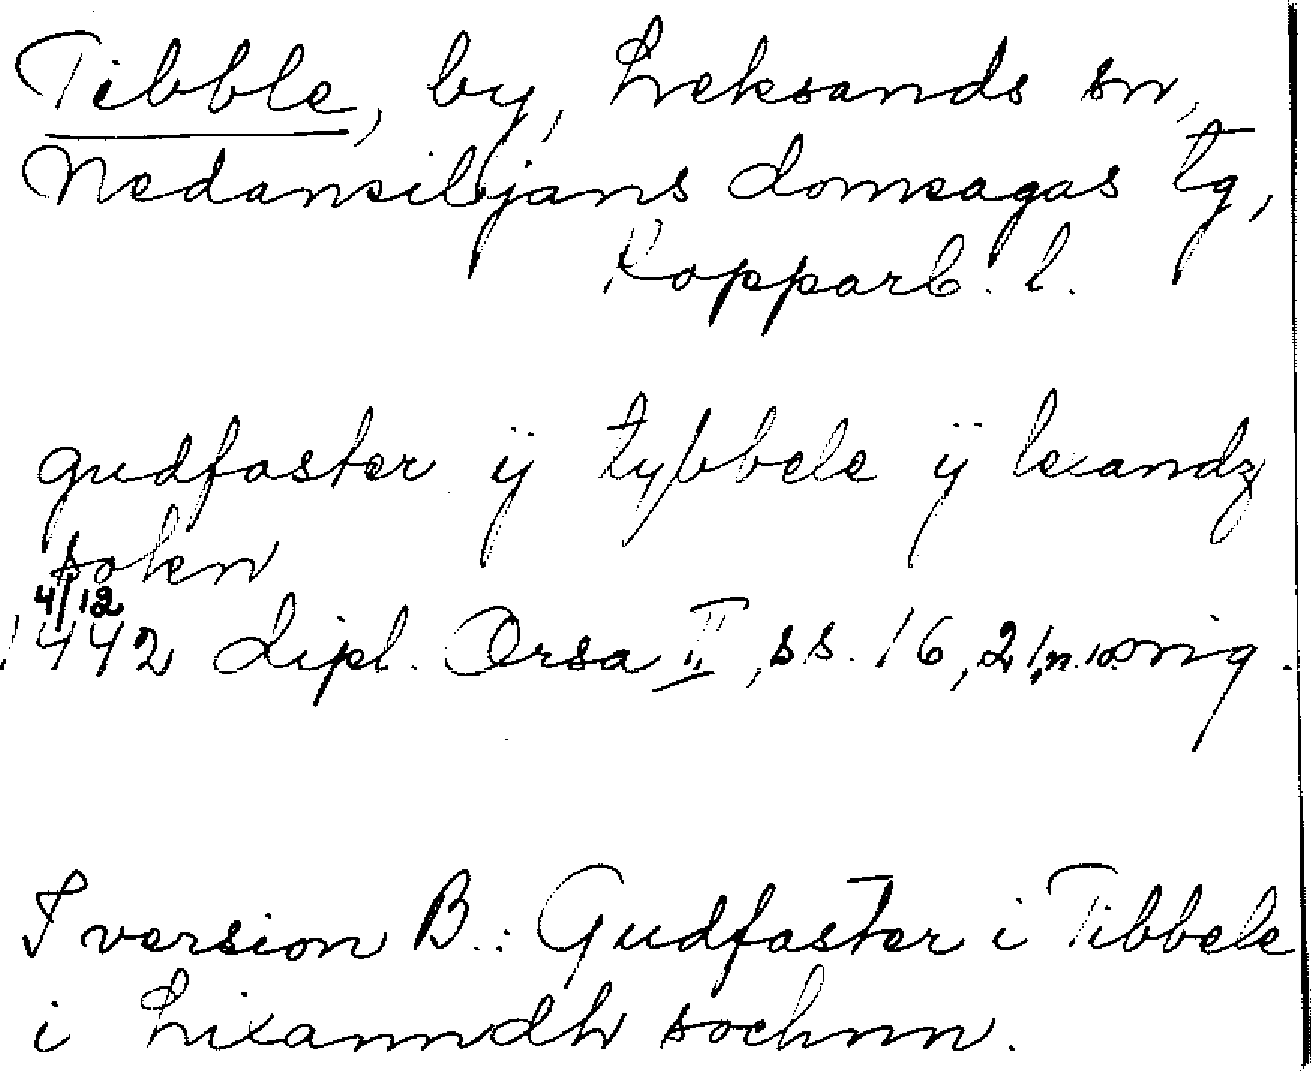 Tibble, by, Leksands sn,
Nedansiljans domsagas tg,
Kopparb. l.
gudfaster ÿ tybbele ÿ lexandz
sokn
4/12
1442 dipl. Orsa II, ss. 16, 21, n. 10 orig.
I version B.: Gudfaster i Tibbele
i Lixanndh sochnn.